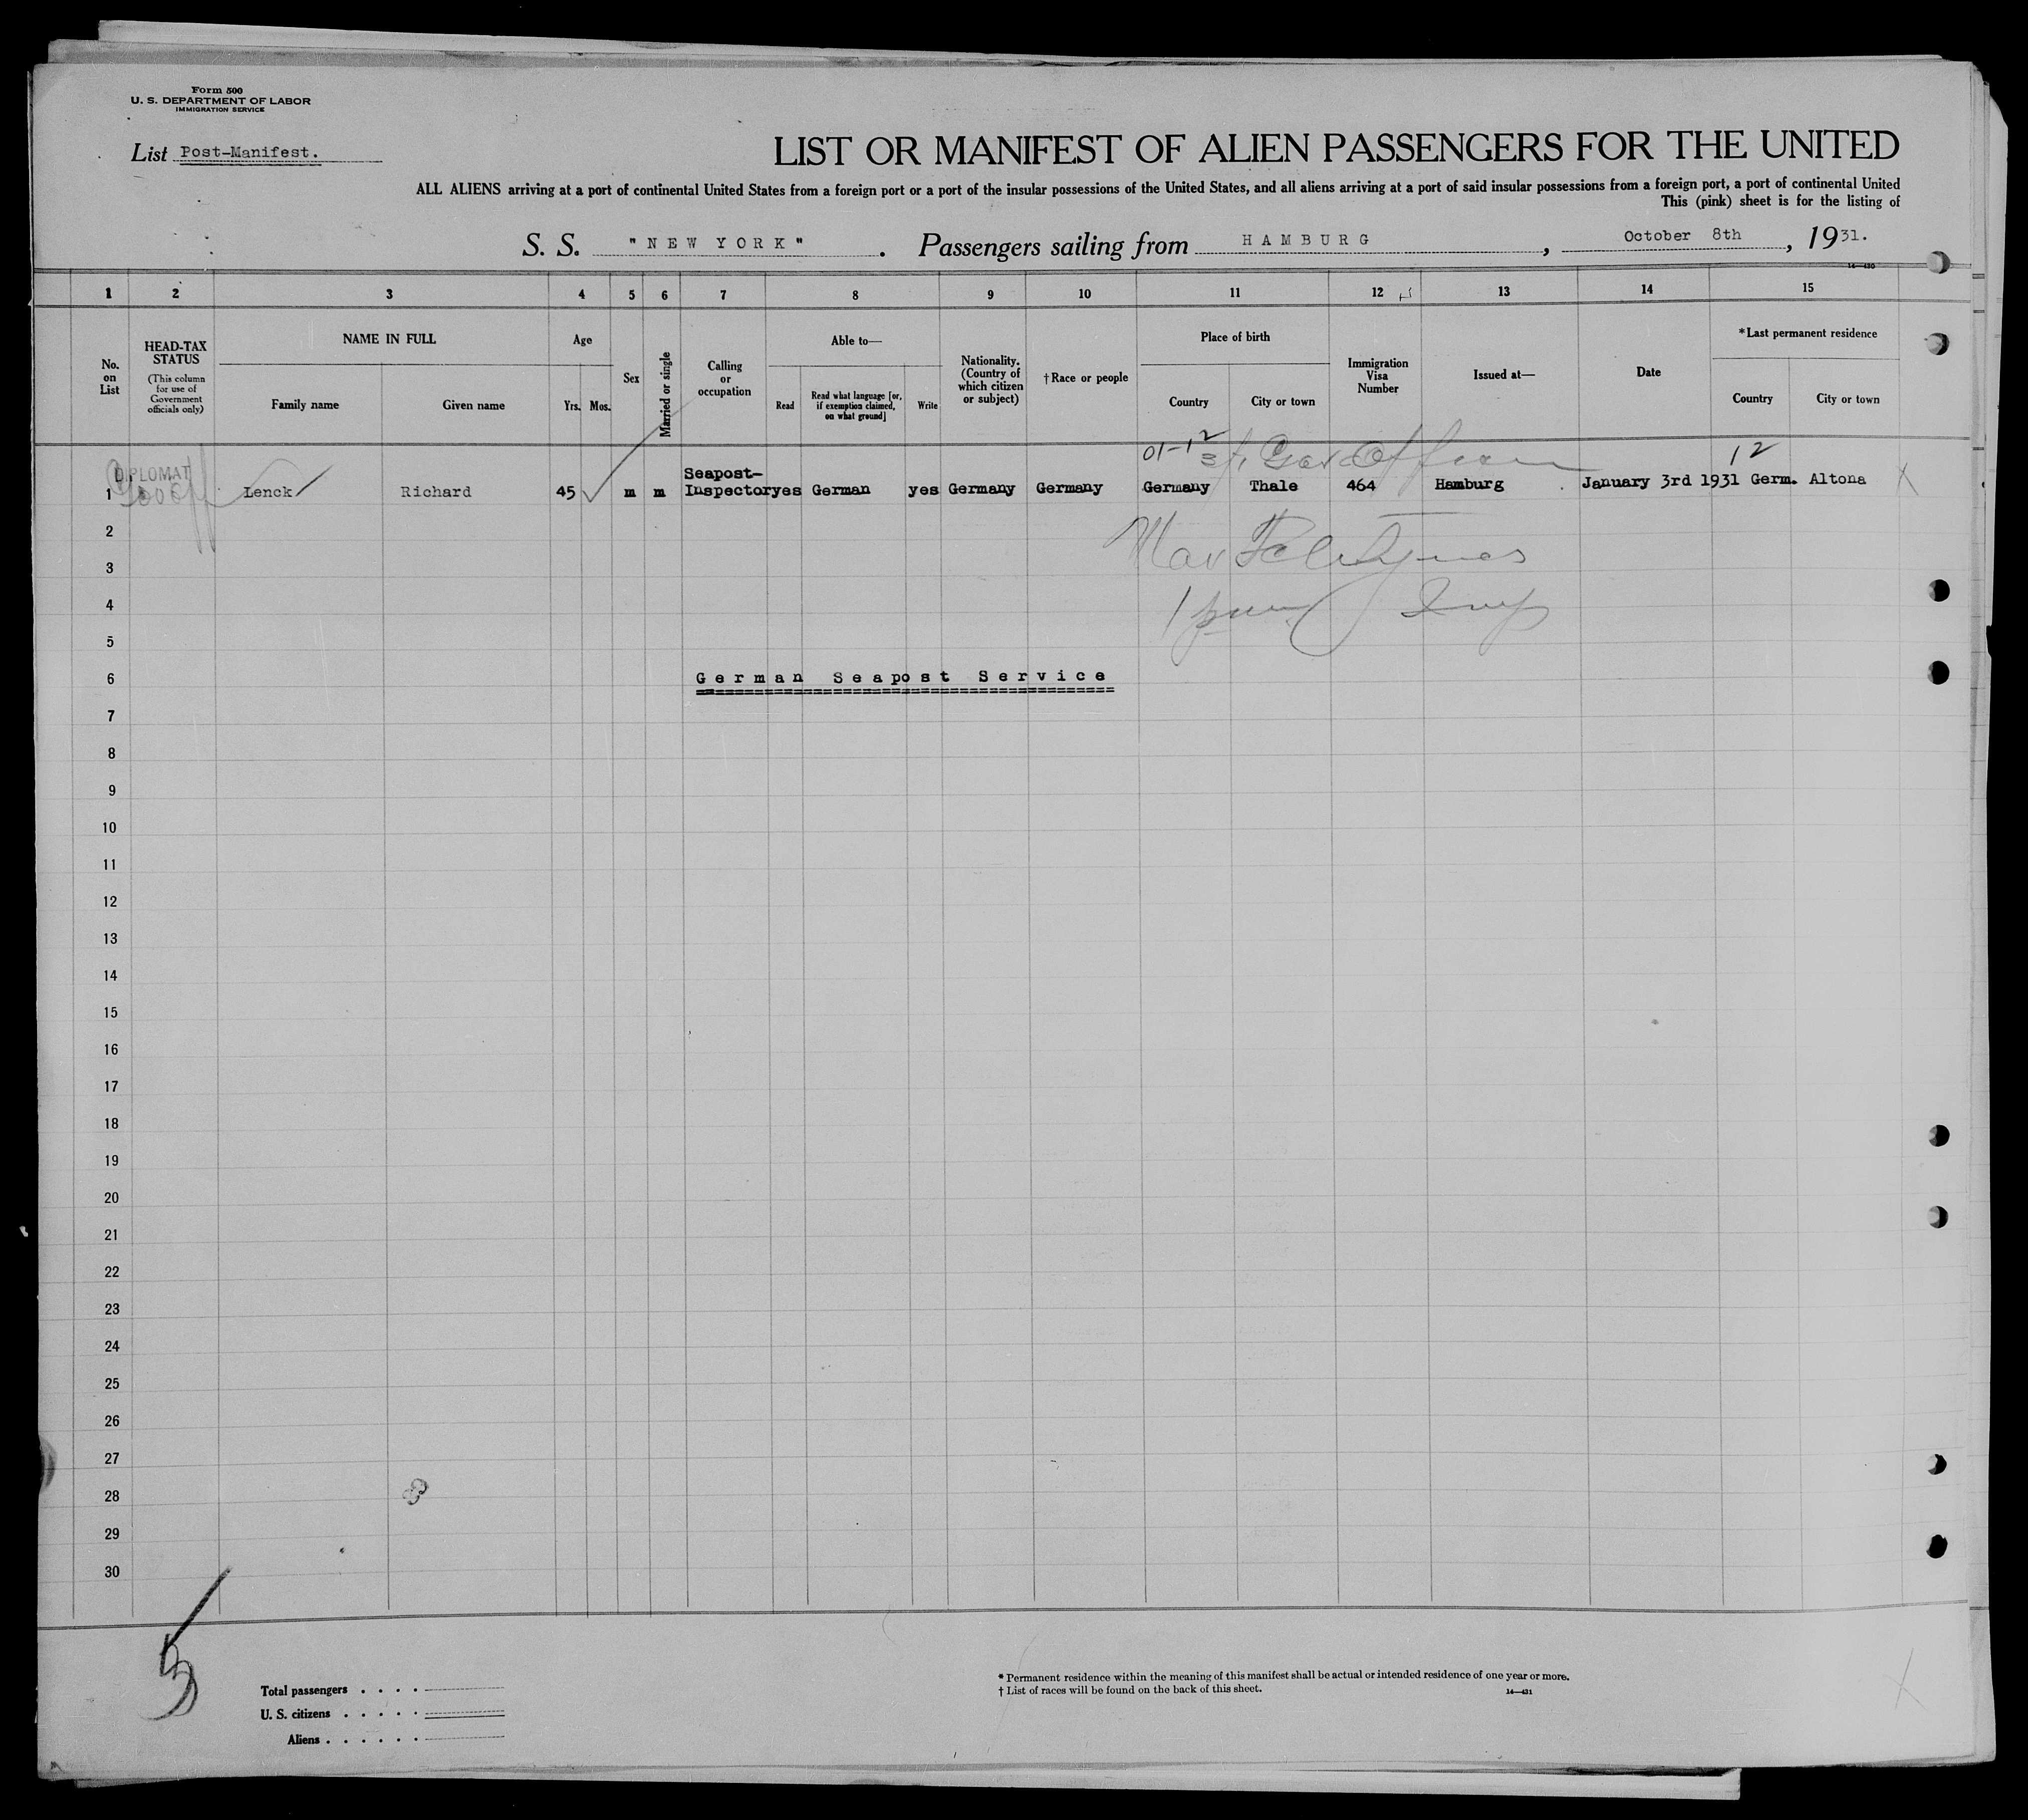 Form 500
U. S. DEPARTMENT OF LABOR
IMMIGRATION SERVICE
List Post-Manifest.
LIST OR MANIFEST OF ALIEN PASSENGERS FOR THE UNITED
ALL ALIENS arriving at a port of continental United States from a foreign port or a port of the insular possessions of the United States, and all aliens arriving at a port of said insular possessions from a foreign port, a port of continental United
This (pink) sheet is for the listing of
S. S. "NEW YORK" . Passengers sailing from HAMBURG , October 8th , 1931.
14—430
1 2 3 4 5 6 7 8 9 10 11 12 13 14 15
No. on List
HEAD-TAX STATUS
(This column for use of Government officials only)
NAME IN FULL
Family name
Given name
Age
Yrs. Mos.
Sex
Married or single
Calling or occupation
Able to—
Read
Read what language [or, if exemption claimed, on what ground]
Write
Nationality. (Country of which citizen or subject)
†Race or people
Place of birth
Country
City or town
Immigration Visa Number
Issued at—
Date
*Last permanent residence
Country
City or town
12
DIPLOMAT
1 Lenck Richard 45 m m Seapost-Inspector yes German yes Germany Germany Germany Thale 464 Hamburg January 3rd 1931 Germ. Altona X
2
3
4
5
6 German Seapost Service
7
8
9
10
11
12
13
14
15
16
17
18
19
20
21
22
23
24
25
26
27
28
29
30
Total passengers . . . .
U. S. citizens . . . . .
Aliens . . . . . .
* Permanent residence within the meaning of this manifest shall be actual or intended residence of one year or more.
† List of races will be found on the back of this sheet.
14—431